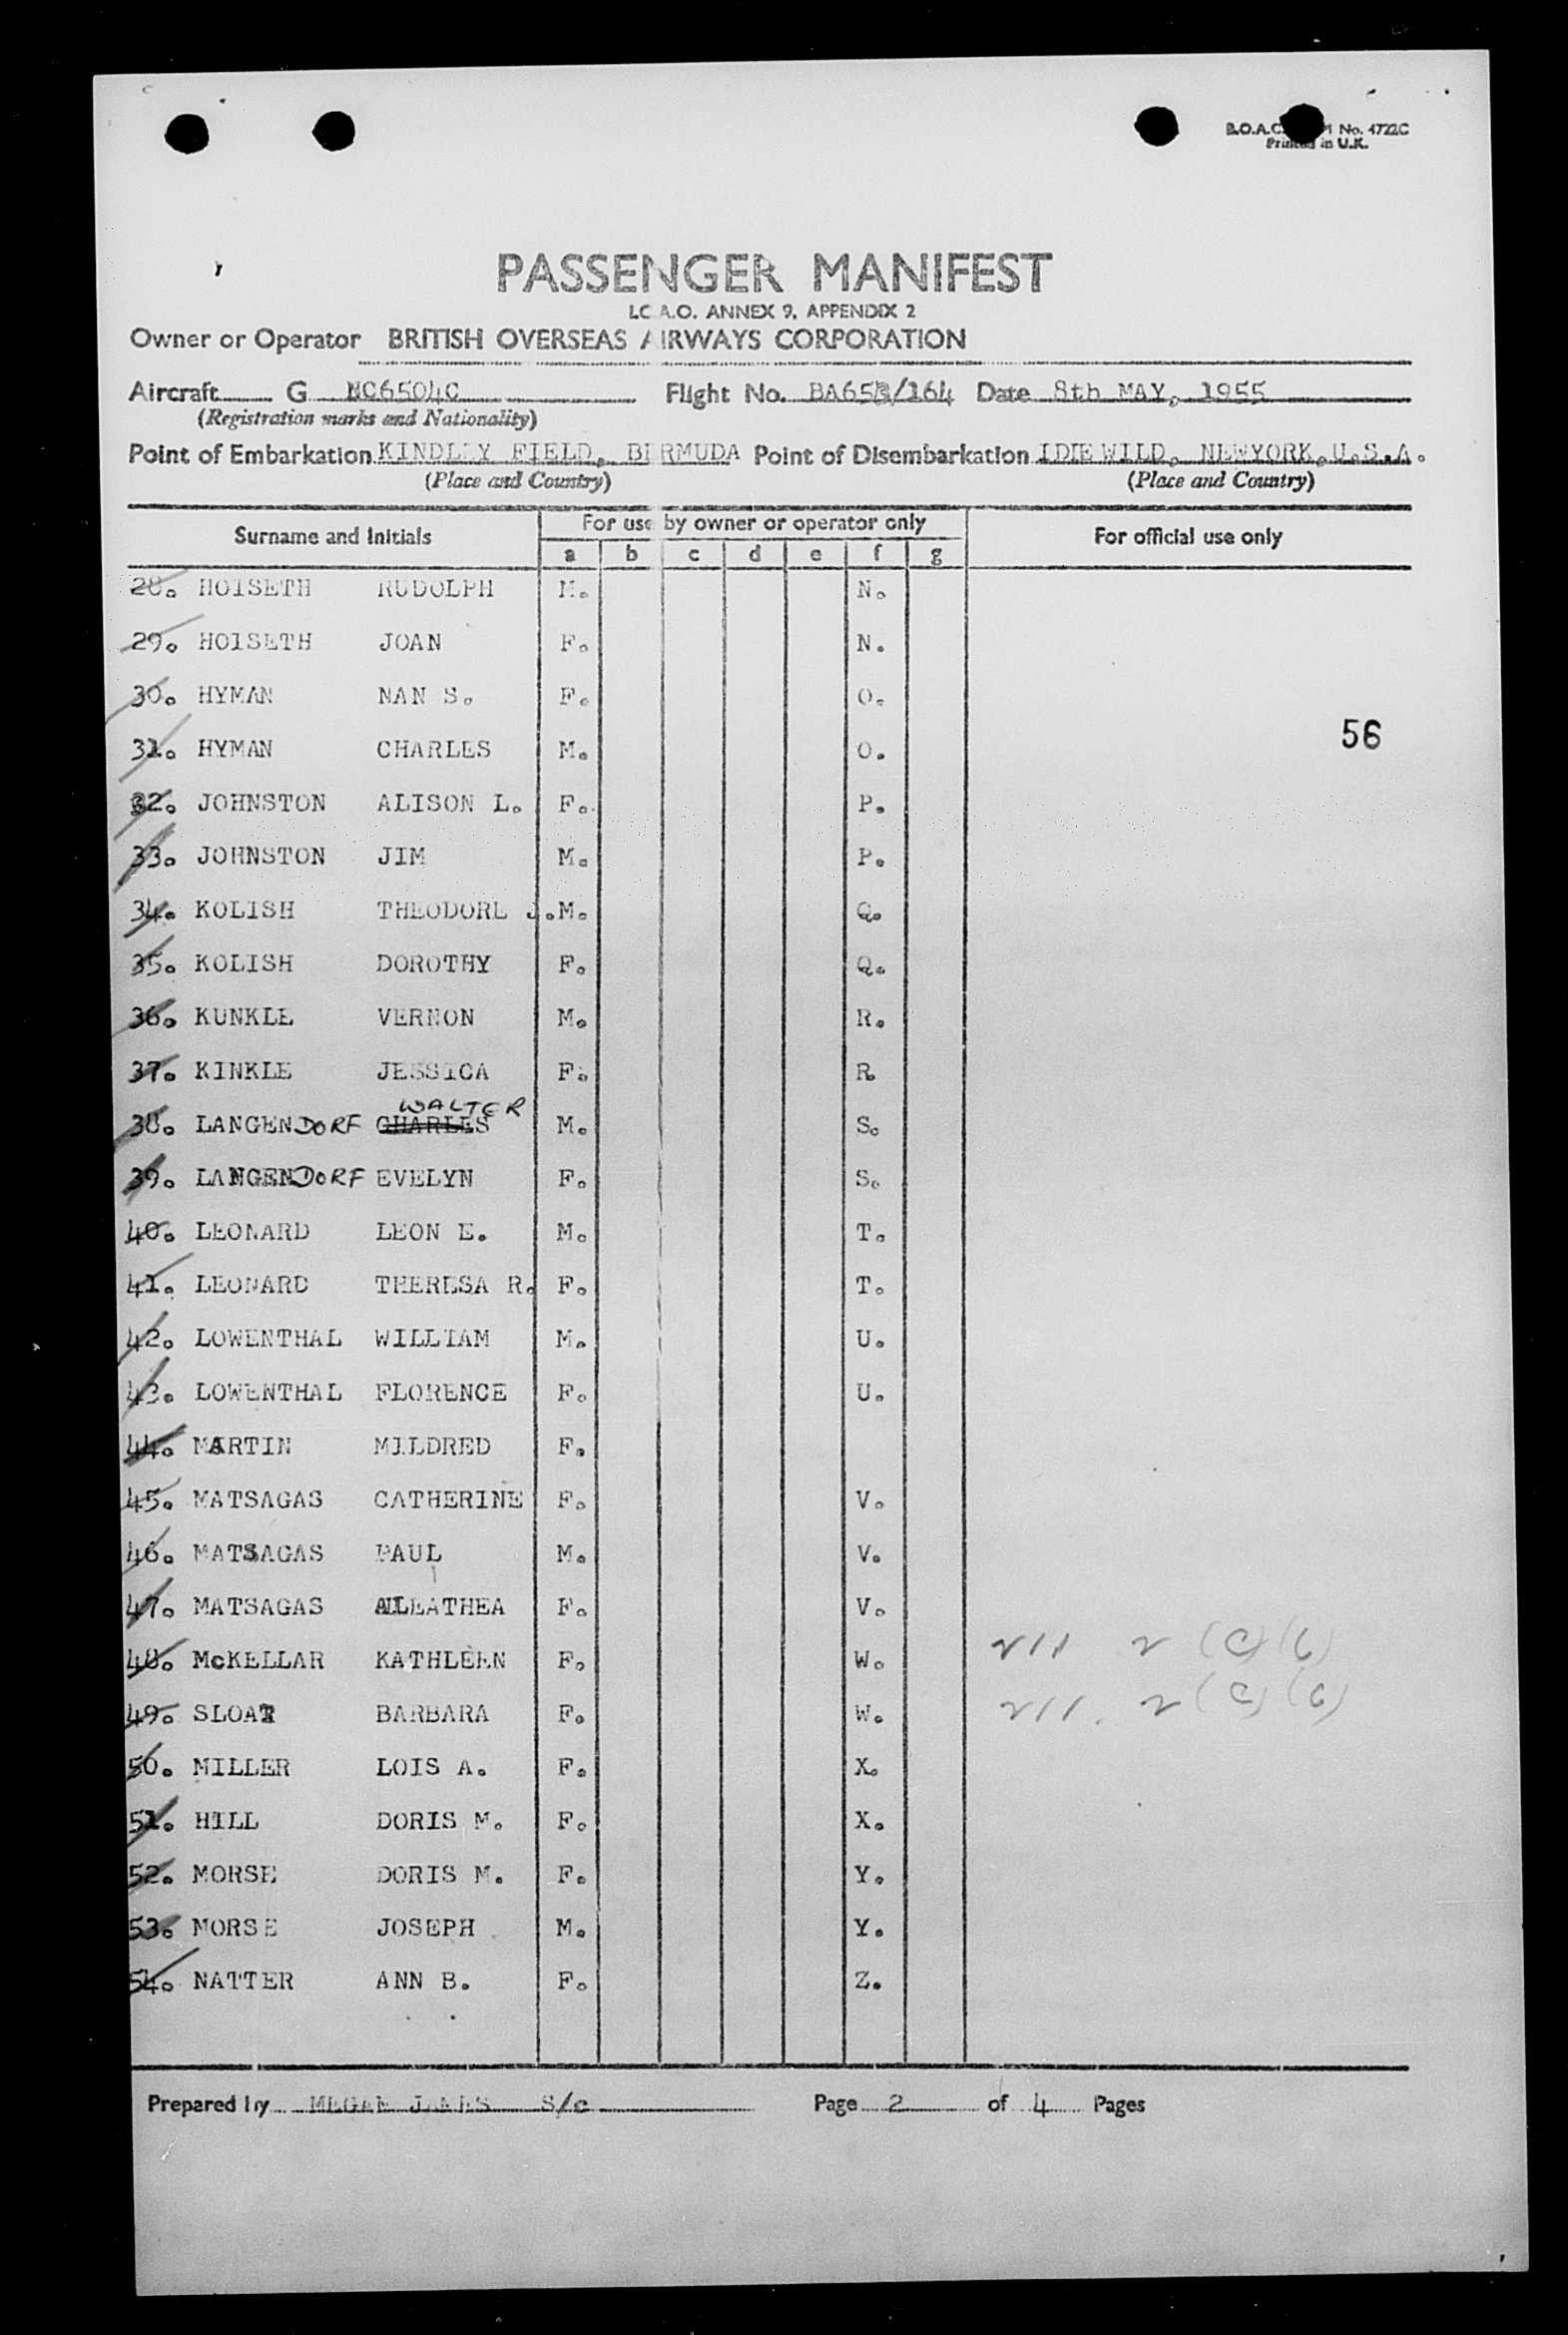 B.O.A.C. No. 4722C
Printed in U.K.
PASSENGER MANIFEST
I.C.A.O. ANNEX 9, APPENDIX 2
Owner or Operator BRITISH OVERSEAS AIRWAYS CORPORATION
Aircraft G NC6504C Flight No. Date 8th MAY, 1955
(Registration marks and Nationality)
Point of Embarkation KINDLEY FIELD, BERMUDA Point of Disembarkation IDLEWILD, NEWYORK, U.S.A.
(Place and Country) (Place and Country)
Surname and Initials For use by owner or operator only For official use only
a b c d e f g
28. HOISETH RUDOLPH M. N.
29. HOISETH JOAN F. N.
30. HYMAN NAN S. F. O.
56
31. HYMAN CHARLES M. O.
32. JOHNSTON ALISON L. F. P.
33. JOHNSTON JIM M. P.
34. KOLISH THEODORE J. M. Q.
35. KOLISH DOROTHY F. Q.
36. KUNKLE VERNON M. R.
37. KINKLE JESSICA F. R
WALTER
38. LANGENDORF CHARLES M. S.
39. LANGENDORF EVELYN F. S.
40. LEONARD LEON E. M. T.
41. LEONARD THERESA R. F. T.
42. LOWENTHAL WILLIAM M. U.
43. LOWENTHAL FLORENCE F. U.
44. MARTIN MILDRED F.
45. MATSAGAS CATHERINE F. V.
46. MATSAGAS PAUL M. V.
47. MATSAGAS ALEATHEA F. V.
48. McKELLAR KATHLEEN F. W.
49. SLOAT BARBARA F. W.
50. MILLER LOIS A. F. X.
51. HILL DORIS M. F. X.
52. MORSE DORIS M. F. Y.
53. MORSE JOSEPH M. Y.
54. NATTER ANN B. F. Z.
Prepared by MEGAN JAMES S/c Page 2 of 4 Pages